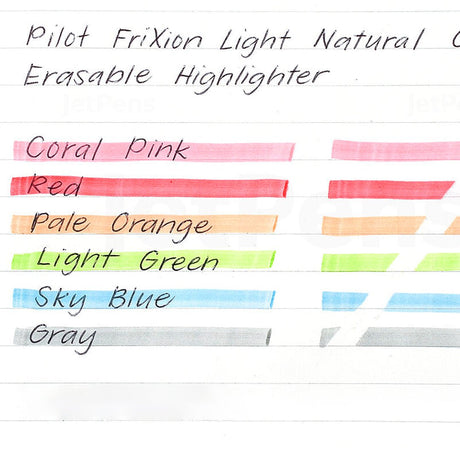 Pilot FriXion Light Natural
Erasable Highlighter
JetPens
Coral Pink
Red
Pale Orange
Light Green
Sky Blue
Gray